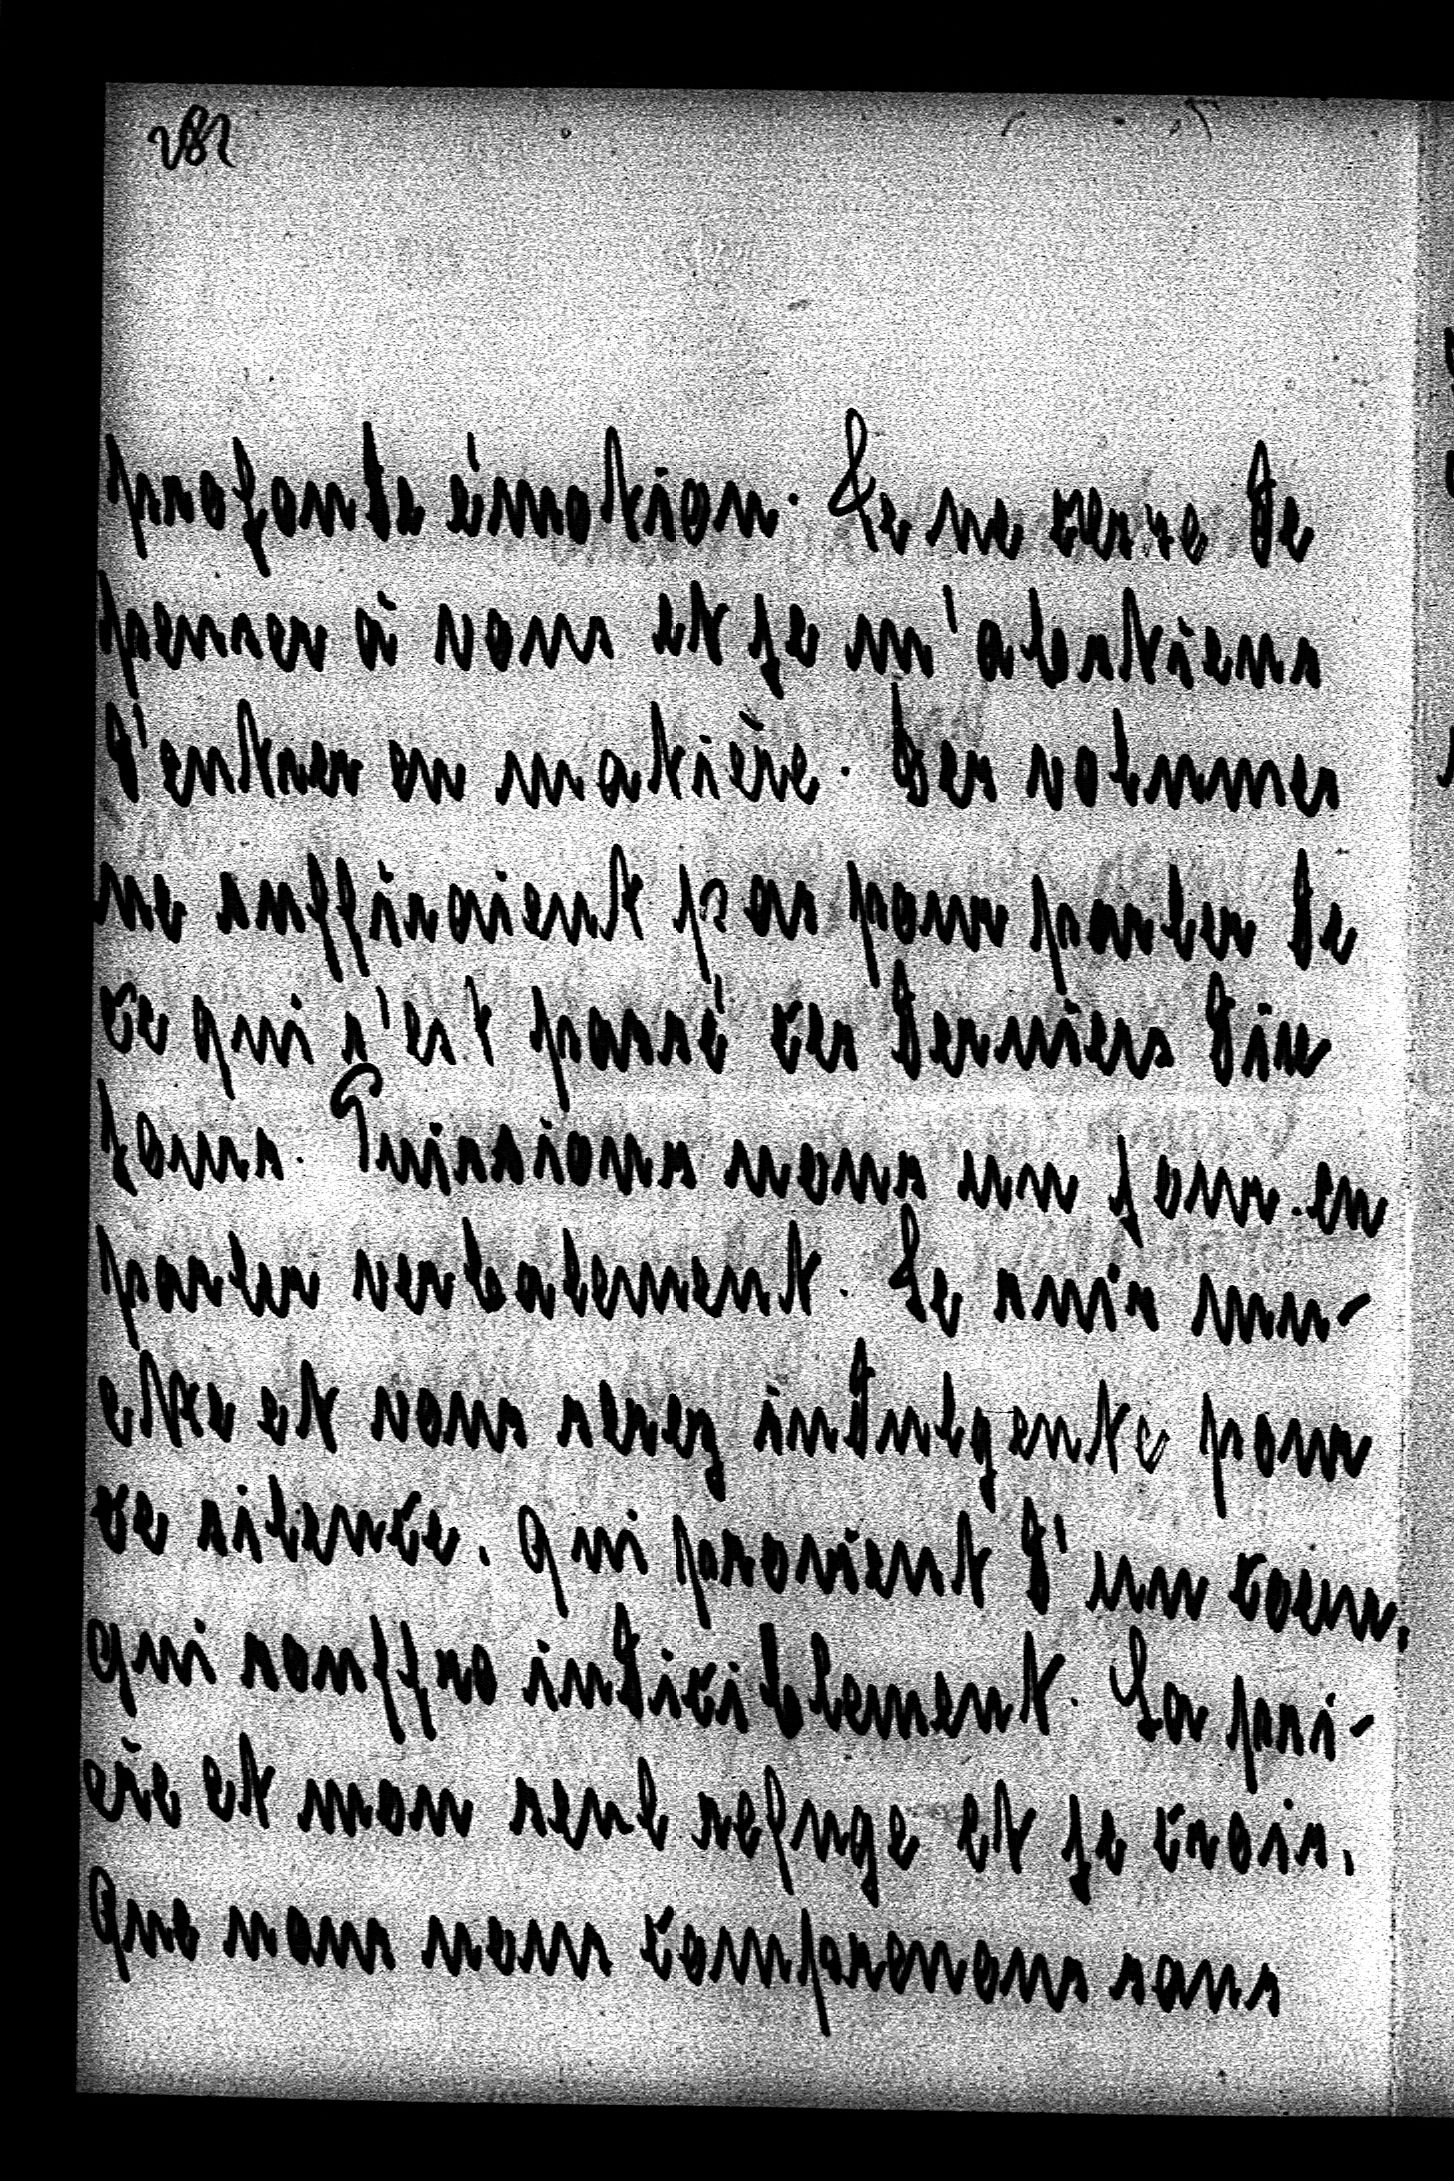 282
profonde émotion. Je ne cesse de
penser à vous et je m'abstiens
d'entrer en matière. Des volumes
ne suffiraient pas pour parler de
ce qui s'est passé ces derniers dix
jours. Puissions nous un jour en
parler verbalement. Je suis mu-
ette et vous serez indulgente pour
ce silence, qui provient d'un coeur,
qui souffre indiciblement. La pri-
ère et mon seul refuge et je crois,
que nous nous comprenons sans